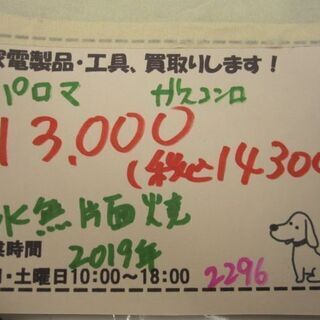 家電製品・工具、買取りします!
パロマ ガスコンロ
13.000
(税込14300
水無片面焼
業時間 2019年
・土曜日10:00～18:00 2296